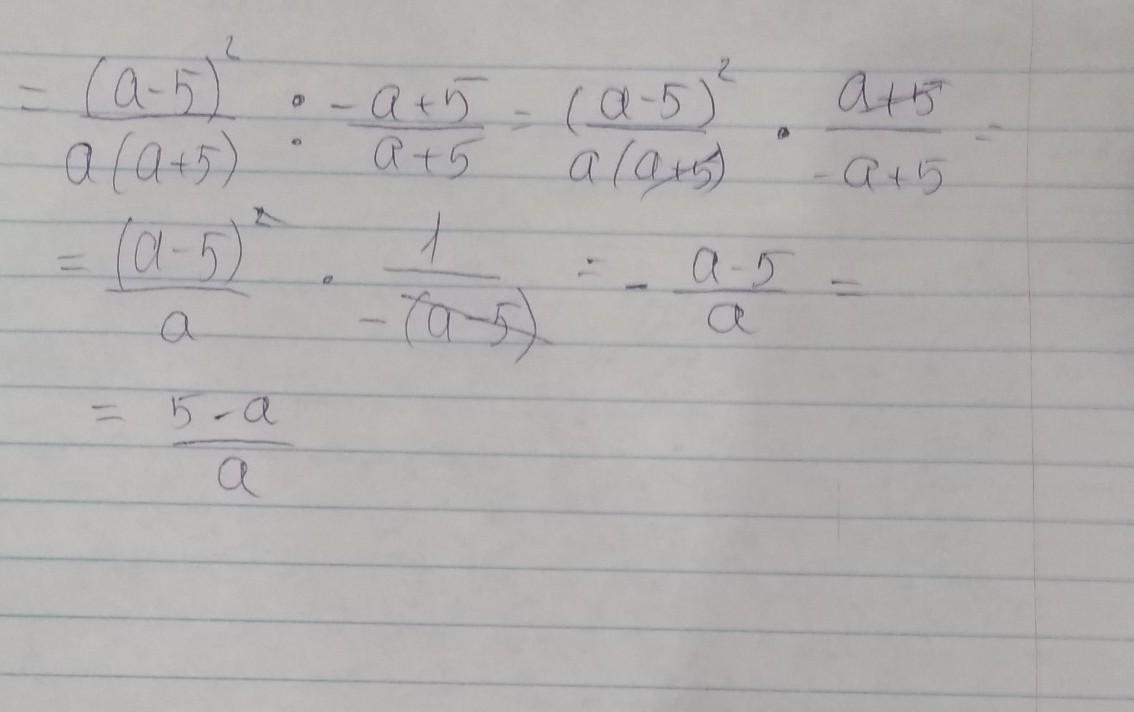 = (a-5)² / a(a+5) : -a+5 / a+5 = (a-5)² / a(a+5) · a+5 / -a+5 =
= (a-5)² / a · 1 / -(a-5) = - a-5 / a =
= 5-a / a